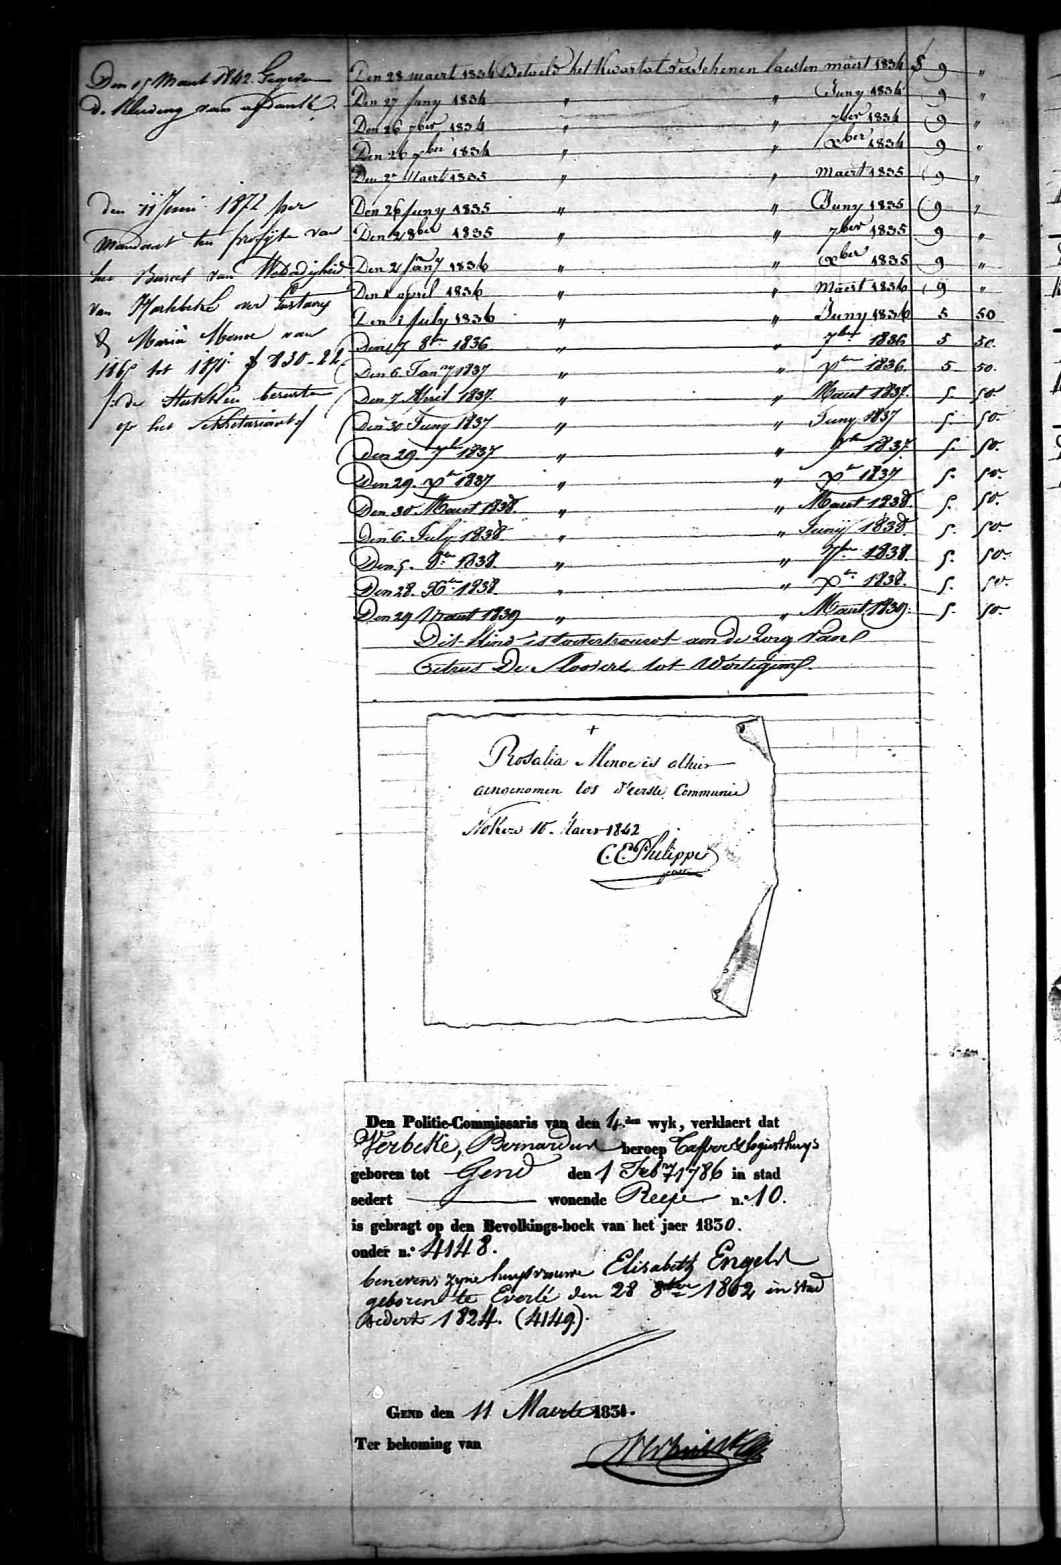 Den 15 Maart 1842. Gegeven
de kleeding van afdankk.
den 11 Juni 1872 per
mandaat ten profijte van
het Bureel van Weldadigheid
van Harlebeke over Gustaaf
& Maria Menoe van
1865 tot 1871 f 830-22
de stukken berusten
op het Sekretariaat
Den 28 maert 1834 Betaeld het Kwartal verschenen laesten mäert 1834 f 9 "
Den 27 Juny 1834 " " Juny 1834 9 "
Den 26 7ber 1834 " " 7ber 1834 9 "
Den 26 xber 1834 " " xber 1834 9 "
Den 27 Maert 1835 " " Maert 1835 9 "
Den 26 Juny 1835 " " Juny 1835 9 "
Den 2 8ber 1835 " " 7ber 1835 9 "
Den 2 Jany 1836 " " xber 1835 9 "
Den 1 april 1836 " " Mäert 1836 9 "
Den 1 July 1836 " " Juny 1836 5 50
Den 17 8br 1836 " " 7ber 1836 5 50.
Den 6 Jany 1837 " " xber 1836. 5 50.
Den 7 Avril 1837. " " Maert 1837. 5. 50.
Den 30 Juny 1837 " " Juny 1837 5. 50.
Den 29. 7br 1837 " " 7br 1837. 5. 50.
Den 29. xr 1837 " " xr 1837 5. 50.
Den 30 Maert 1838. " " Maert 1838. 5. 50.
Den 6. July 1838 " " Junij 1838. 5. 50.
Den 5. 8br 1838. " " 7br 1838. 5. 50.
Den 28. Xbr 1838. " " xr 1838. 5. 50.
Den 29 Maert 1839 " " Maert 1839. 5. 50.
Dit kind is toevertrouwt aen de zorg van
Petrus De Sloovere tot Wortegem.
+
Rosalia Menoe is alhier
aengenomen tot d'eerste Communie
Nokere 16. Maert 1842
C. E. Philippe
past.
Den Politie-Commissaris van den 4.den wyk, verklaert dat
Verbeke, Bernardus beroep Tapper & logisthuys
geboren tot Gend den 1 Feb.ry 1786 in stad
sedert wonende Reepe n.º 10.
is gebragt op den Bevolkings-boek van het jaer 1830.
onder n.º 4148.
benevens zyne huysvrouwe Elisabeth Engels
geboren te Everlé den 28 8bre 1802 in stad
sedert 1824. (4149).
GEND den 11 Maerte 1834.
Ter bekoming van